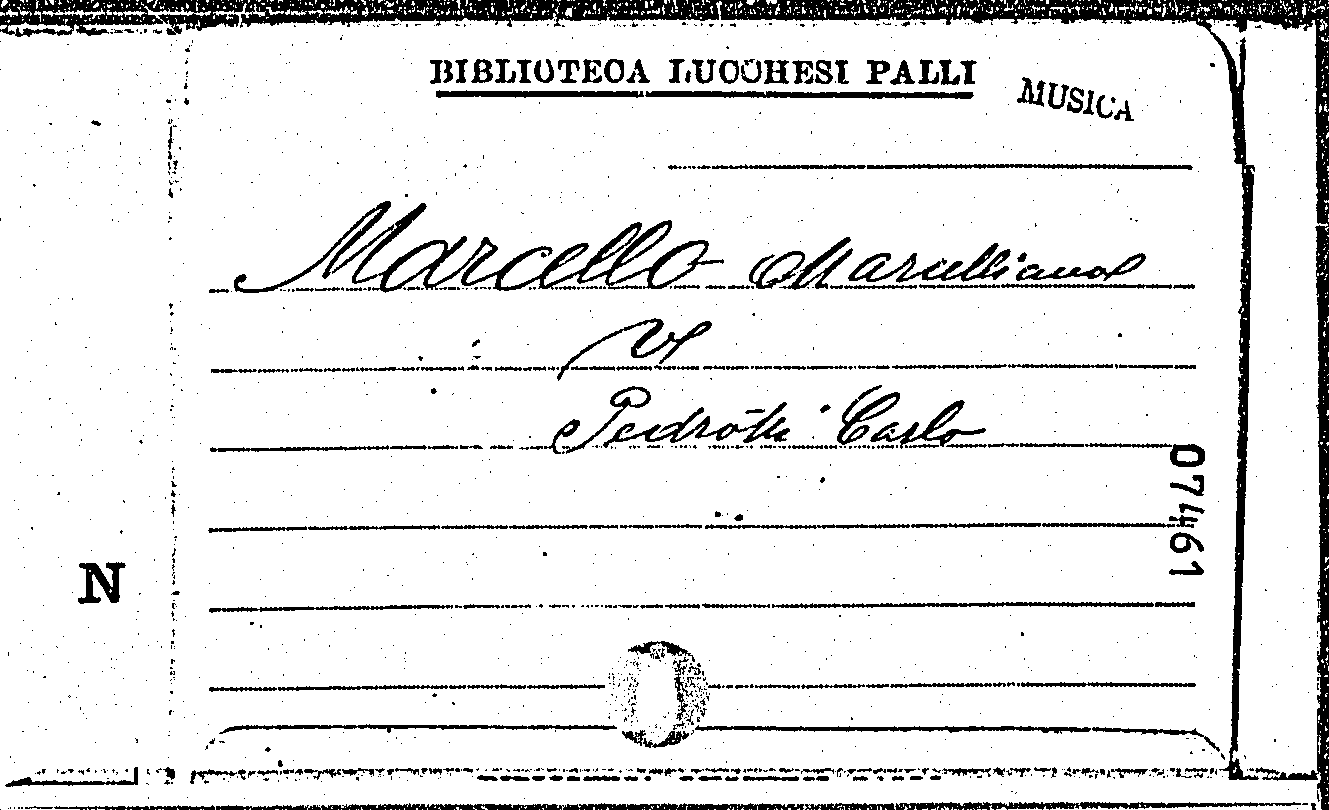 BIBLIOTECA LUCCHESI PALLI
MUSICA
Marcello Marcelliano
V
Pedrotti Carlo
07461
N